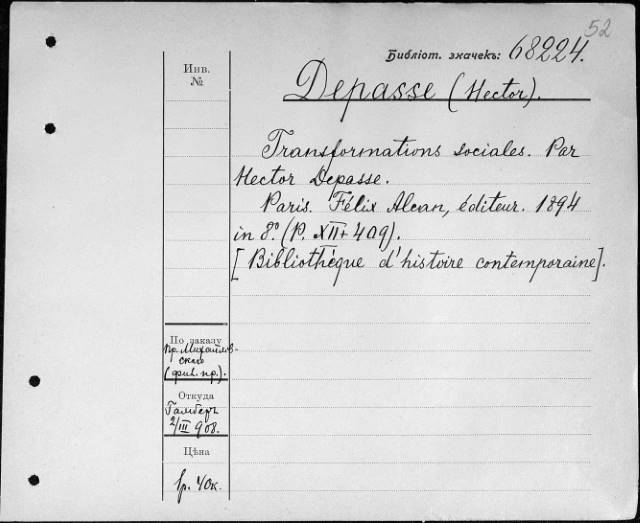 52
Библіот. значекъ: 68224.
Инв.
№
Depasse (Hector).
Transformations sociales. Par
Hector Depasse.
Paris. Félix Alcan, éditeur. 1894
in 8º. (P. XII+409).
[Bibliothèque d'histoire contemporaine].
По заказу
пр. Михайлов-
скаго
(фил. пр.).
Откуда
Гамберъ
2/III 908.
Цѣна
1р. 40к.